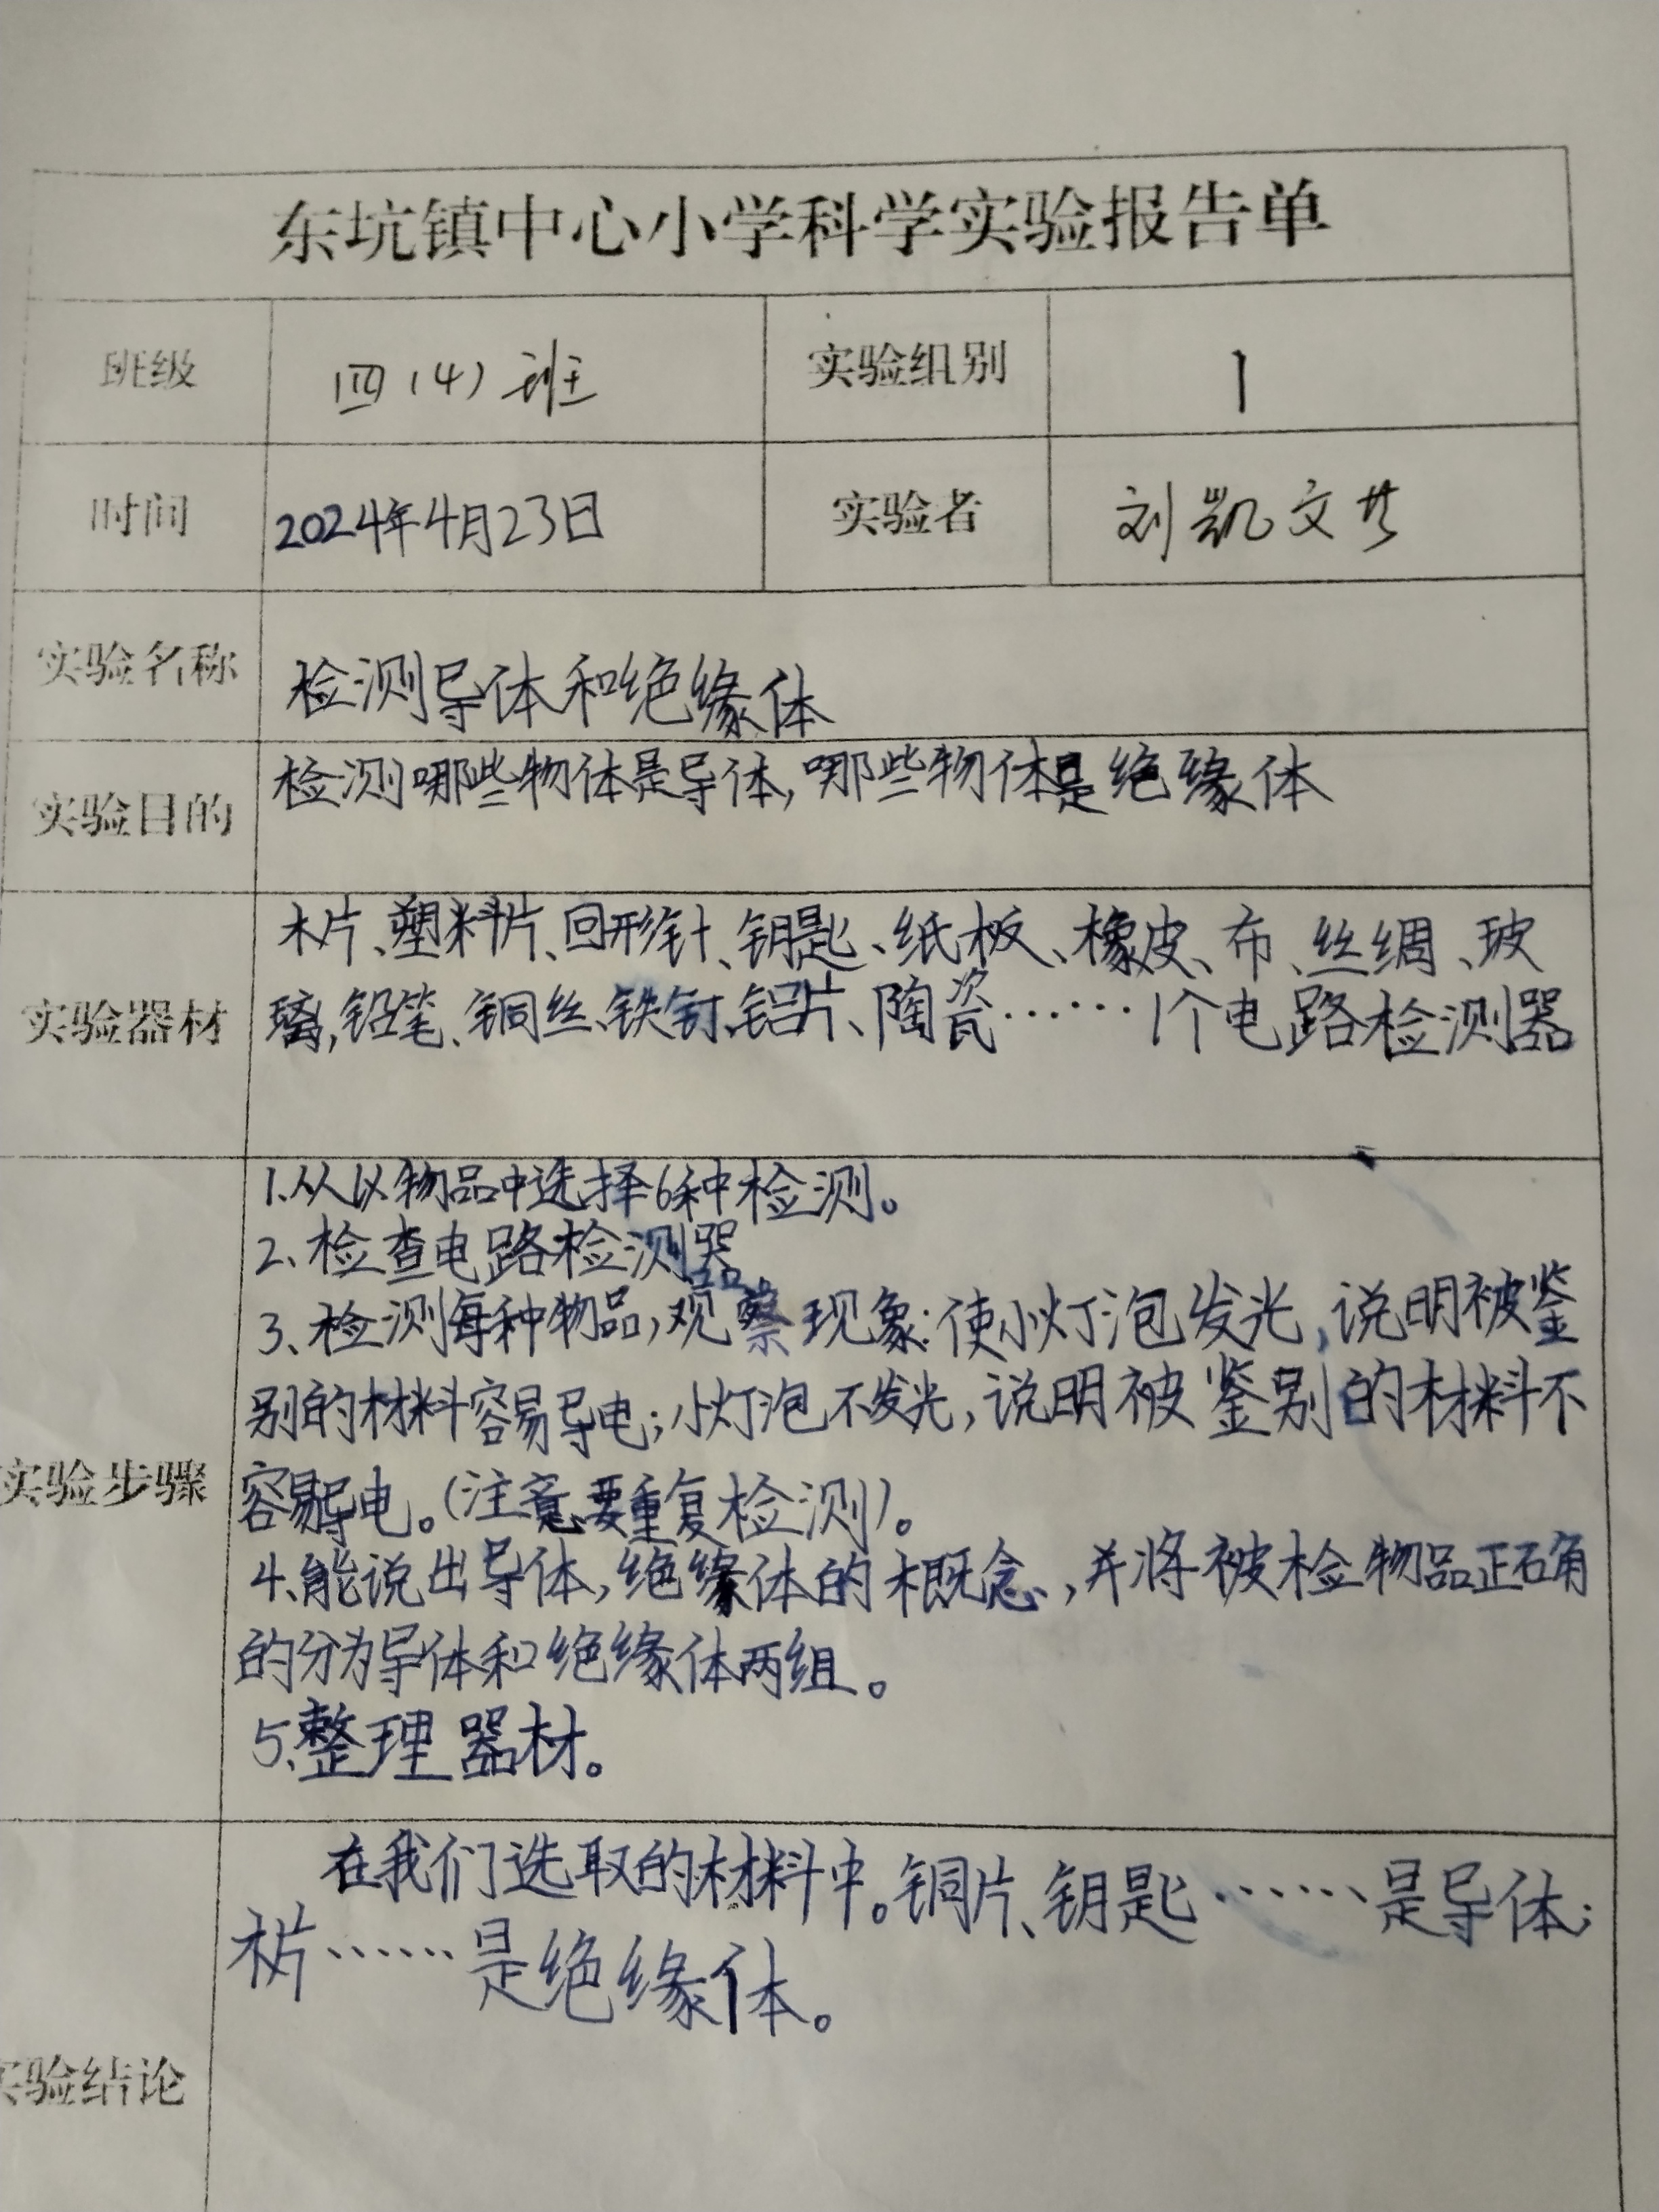 东坑镇中心小学科学实验报告单
班级 四(4)班 实验组别 1
时间 2024年4月23日 实验者 刘凯文
实验名称 检测导体和绝缘体
实验目的 检测哪些物体是导体,哪些物体是绝缘体
木片、塑料片、回形针、钥匙、纸板、橡皮、布、丝绸、玻
实验器材 璃,铅笔、铜丝、铁钉、铝片、陶瓷……1个电路检测器
1.从以物品中选择6种检测。
2、检查电路检测器。
3、检测每种物品,观察现象:使小灯泡发光,说明被鉴
别的材料容易导电;小灯泡不发光,说明被鉴别的材料不
实验步骤 容易导电。(注意要重复检测)。
4、能说出导体,绝缘体的概念,并将被检物品正确
的分为导体和绝缘体两组。
5、整理器材。
在我们选取的材料中。铜片、钥匙……是导体;
木片……是绝缘体。
实验结论